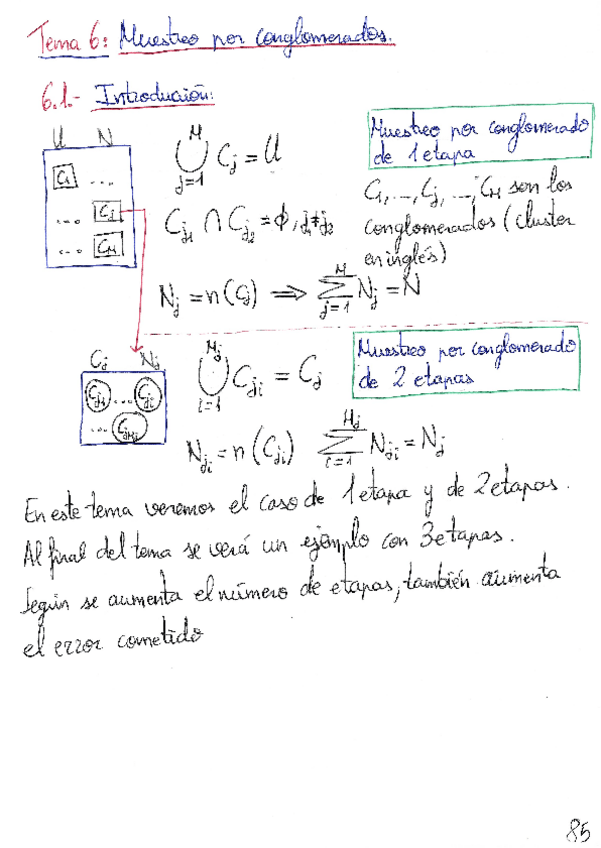 Tema 6: Muestreo por conglomerados.
6.1.- Introducción:
U N
C₁ ...
... Cⱼ
... C_M
⋃_{j=1}^{M} Cⱼ = U
C_{j₁} ∩ C_{j₂} = ϕ, j₁≠j₂
Nⱼ = n(Cⱼ) ⟹ ∑_{j=1}^{M} Nⱼ = N
Muestreo por conglomerado
de 1 etapa
C₁, ..., Cⱼ, ..., C_M son los
conglomerados (cluster
en inglés)
Cⱼ Nⱼ
C_{j1} ... C_{ji}
... C_{jMj}
⋃_{i=1}^{Mⱼ} C_{ji} = Cⱼ
N_{ji} = n(C_{ji}) ∑_{i=1}^{Mⱼ} N_{ji} = Nⱼ
Muestreo por conglomerado
de 2 etapas
En este tema veremos el caso de 1 etapa y de 2 etapas.
Al final del tema se verá un ejemplo con 3 etapas.
Según se aumenta el número de etapas, también aumenta
el error cometido
85